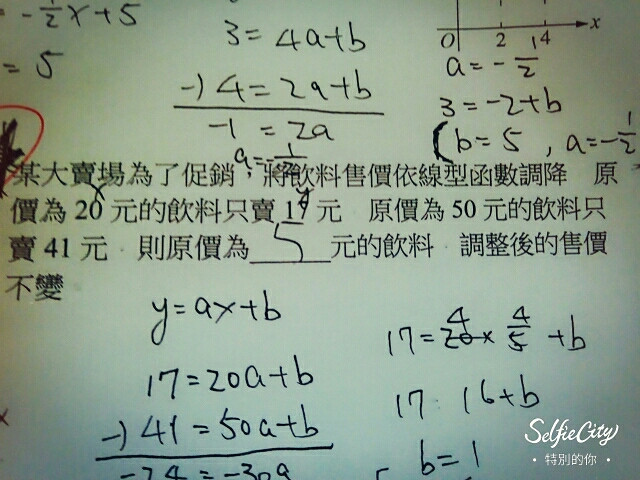 -1/2x+5
= 5
3 = 4a+b
-) 4 = 2a+b
-1 = 2a
a=-1/2
O 2 4 x
a=-1/2
3=-2+b
(b=5 , a=-1/2
某大賣場為了促銷，將飲料售價依線型函數調降 原
價為 20 元的飲料只賣 17 元 原價為 50 元的飲料只
賣 41 元 則原價為 5 元的飲料 調整後的售價
不變
y=ax+b
17=20a+b
-) 41=50a+b
-24=-30a
17=20× 4/5 +b
4
17 16+b
b=1
SelfieCity
• 特別的你 •